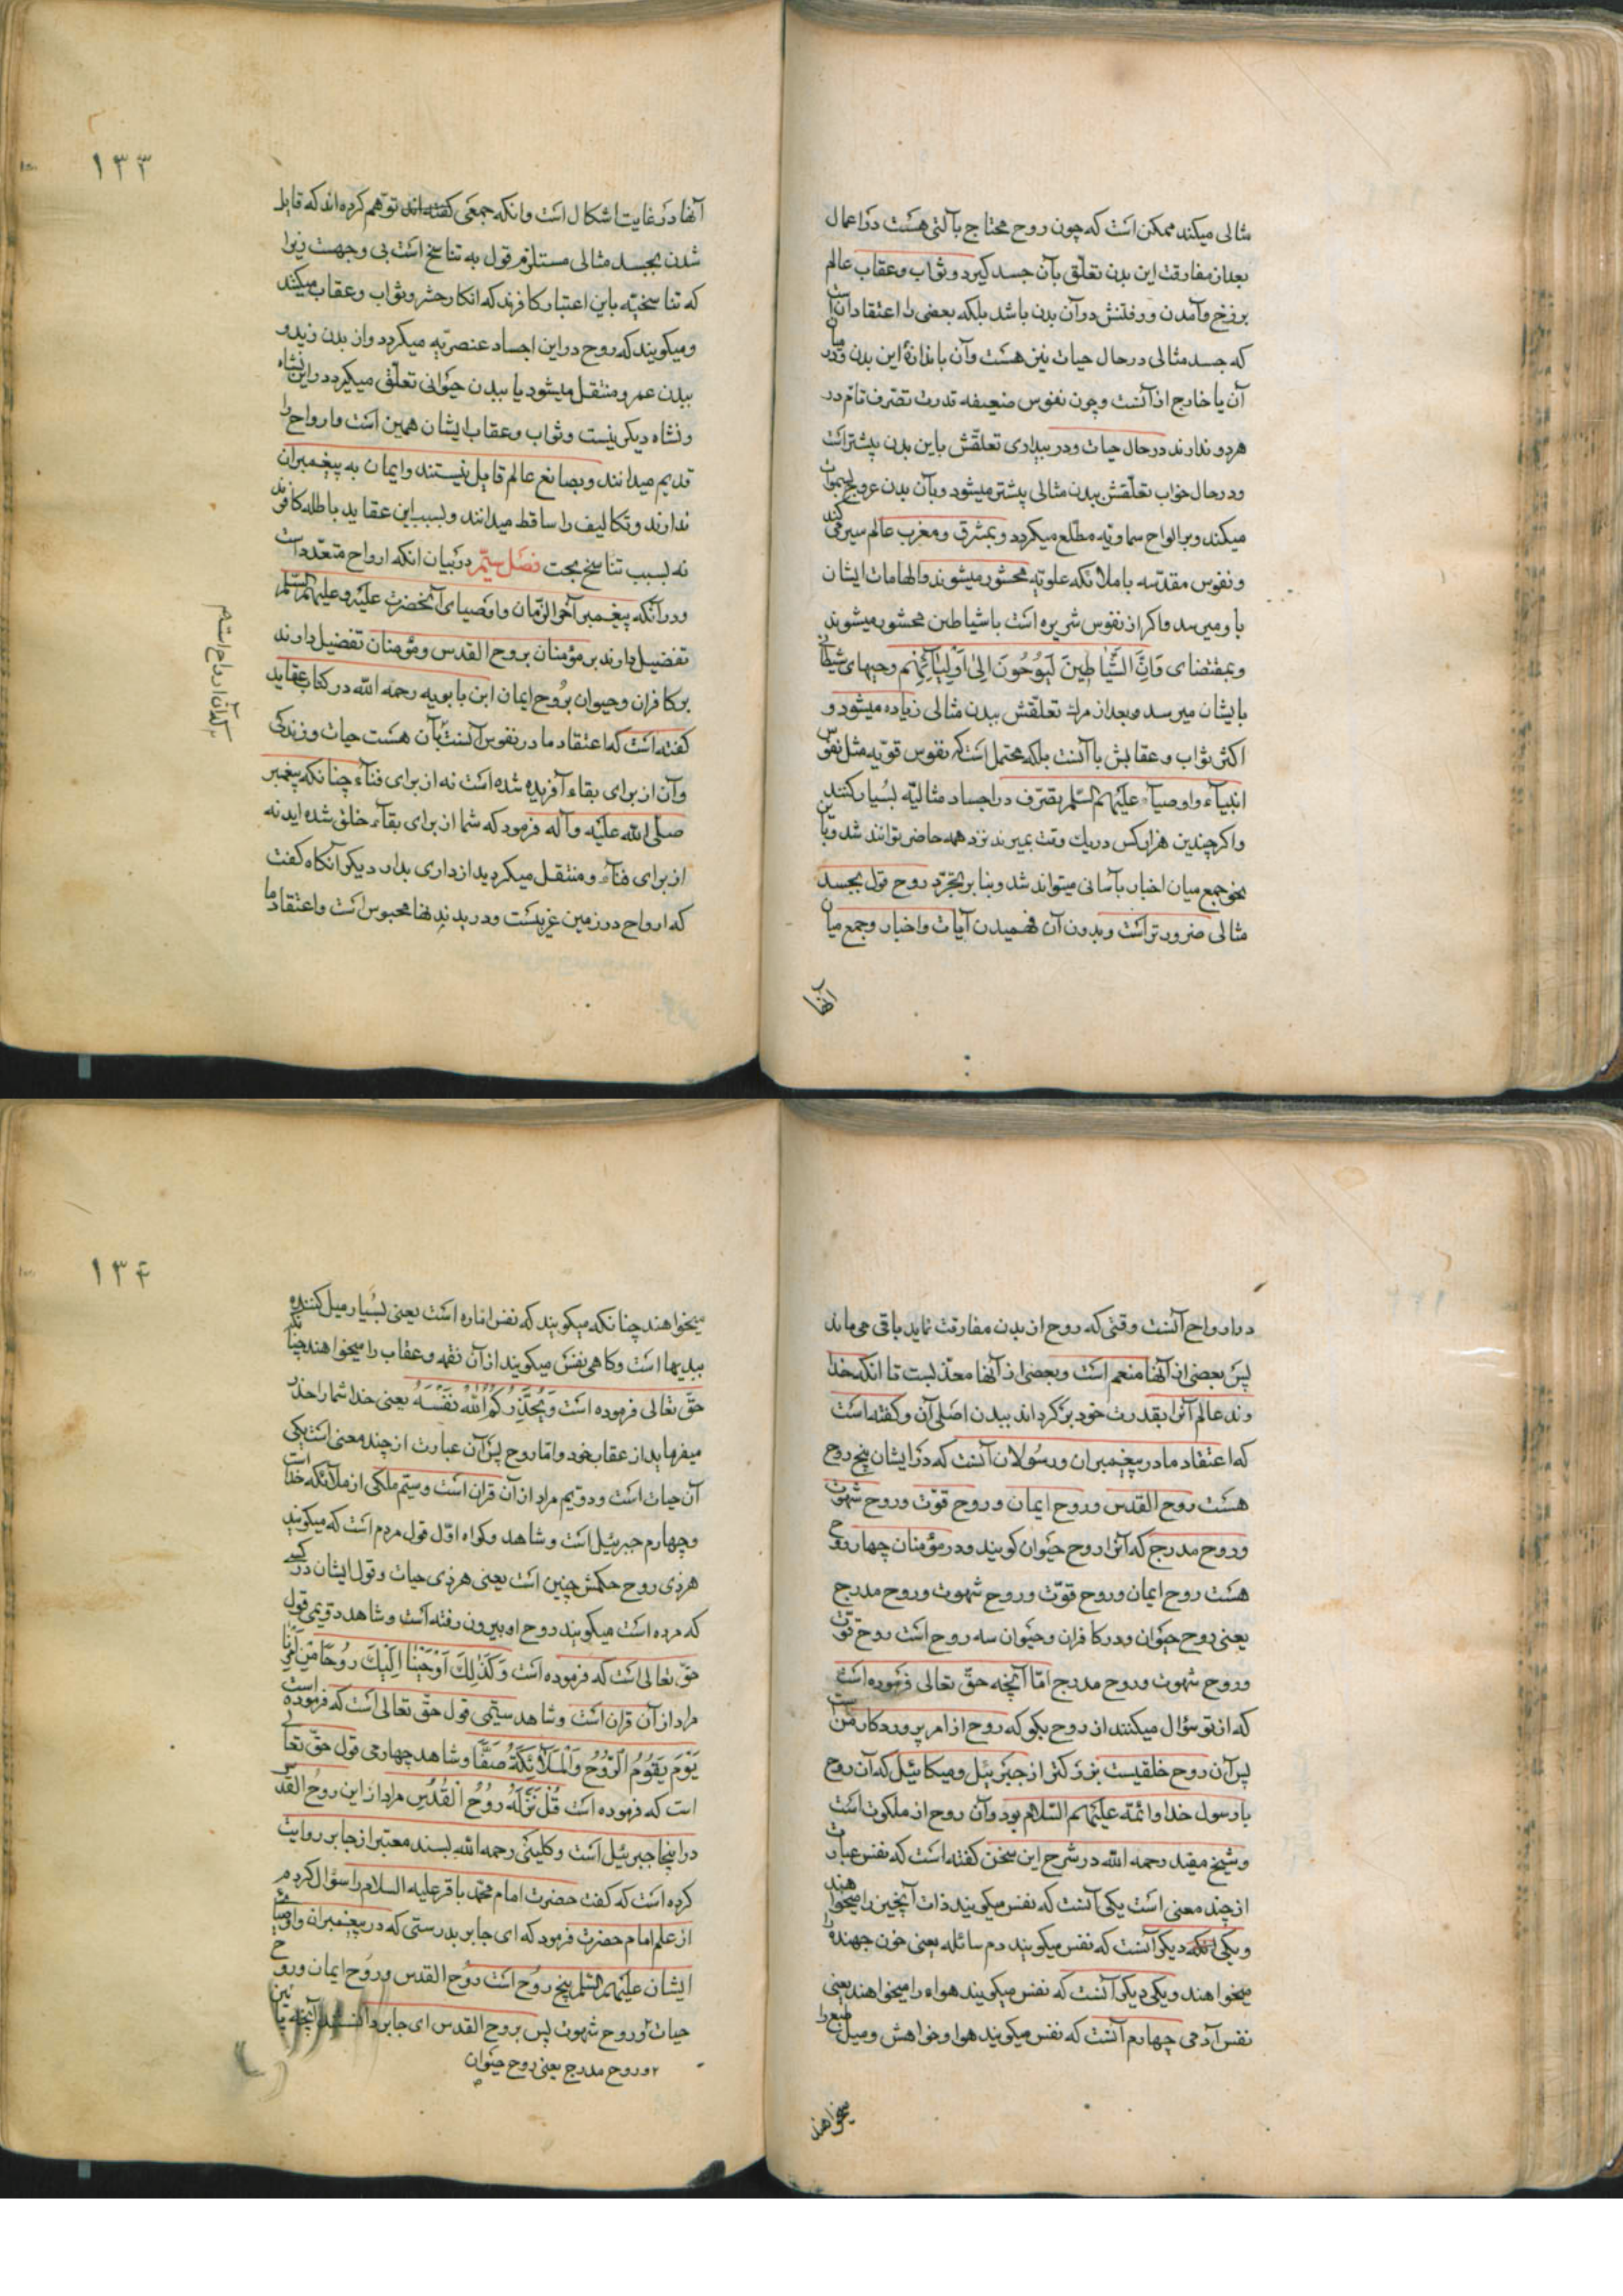 مثالی میکند ممکن است که چون روح محتاج بآلتی هست در اعمال
بعد از مفارقت این بدن تعلّق بآن جسد کیرد و ثواب و عقاب عالم
برزخ و آمدن و رفتنش در آن بدن باشد بلکه بعضی را اعتقاد آن است
که جسد مثالی در حال حیات نیز هست و آن باندازهٔ این بدن و در میان
آن یا خارج از آنست و چون نفوس ضعیفه قدرت تصرف تام در
هر دو ندارند در حال حیات و در بیداری تعلّقش باین بدن بیشتر است
و در حال خواب تعلّقش ببدن مثالی بیشتر میشود و بآن بدن عروج بسموات
میکند و بر الواح سماویّه مطّلع میکردد و بمشرق و مغرب عالم سیر می کند
و نفوس مقدّسه با ملائکه علویّه محشور میشوند و الهامات ایشان
باو میرسد و اکر از نفوس شریره است با شیاطین محشور میشوند
و بمقتضای وَاِنَّ الشَّیَاطِینَ لَیُوحُونَ اِلیٰ اَوْلِیَآئِهِم وحیهای شیطانی
بایشان میرسد و بعد از مرك تعلّقش ببدن مثالی زیاده میشود و
اکثر ثواب و عقابش با آنست بلکه محتمل است که نفوس قویّه مثل نفوس
انبیآء و اوصیآء علیهم السّلم تصرّف در اجساد مثالیّه بسیار کنند
و اکر چندین هزار کس در یك وقت بمیرند نزد همه حاضر توانند شد و باین
نحو جمع میان اخبار بآسانی میتواند شد و بنا بر تجرّد روح قول بجسد
مثالی ضرورتر است و بدون آن فهمیدن آیات و اخبار و جمع میان
آنها
۱۳۳
آنها در غایت اشکال است و انکه جمعی کفته اند توهّم کرده اند که قایل
شدن بجسد مثالی مستلزم قول به تناسخ است بی وجهست زیرا
که تناسخیّه باین اعتبار کافرند که انکار حشر و ثواب و عقاب میکنند
و میکویند که روح در این اجساد عنصریّه میکردد و از بدن زید و
ببدن عمرو منتقل میشود یا ببدن حیوانی تعلّق میکیرد در این نشاه
و نشاه دیکر نیست و ثواب و عقاب ایشان همین است و ارواح را
قدیم میدانند و بصانع عالم قایل نیستند و ایمان به پیغمبران
ندارند و تکالیف را ساقط میدانند و بسبب این عقاید باطله کافرند
نه بسبب تناسخ بحت فصل سیّم در بیان انکه ارواح متعدّد است
و در آنکه پیغمبر آخر الزّمان و اوصیای آنحضرت علیه و علیهم السّلم
تفضیل دارند بر مؤمنان بروح القدس و مؤمنان تفضیل دارند
بر کافران و حیوان بروح ایمان ابن بابویه رحمه اللّه در کتاب عقاید
کفته است که اعتقاد ما در نفوس آنست بآن هست حیات و زندکی
و آن از برای بقاء آفریده شده است نه از برای فنآء چنانکه پیغمبر
صلّی اللّه علیه و آله فرمود که شما از برای بقآء خلق شده اید نه
از برای فنآء و منتقل میکردید از داری بدار دیکر آنکاه کفت
که ارواح در زمین غریبست و در بدنها محبوس است و اعتقاد ما
در ارواح آنست وقتی که روح از بدن مفارقت نماید باقی می ماند
پس بعضی از آنها منعم است و بعضی از آنها معذّبست تا انکه خدا
وند عالم آنرا بقدرت خود برکرداند ببدن اصلی آن و کفته است
که اعتقاد ما در پیغمبران و رسولان آنست که در ایشان پنج روح
هست روح القدس و روح ایمان و روح قوّت و روح شهوت
و روح مدرج که آنرا روح حیوان کویند و در مؤمنان چهار روح
هست روح ایمان و روح قوّت و روح شهوت و روح مدرج
یعنی روح حیوان و در کافران و حیوان سه روح است روح قوّت
و روح شهوت و روح مدرج امّا آنچه حقّ تعالی فرموده است
که از تو سؤال میکنند از روح بکو که روح از امر پروردکار من است
پس آن روح خلقیست بزرکتر از جبرئیل و میکائیل که آن روح
با رسول خدا و ائمّه علیهم السّلام بود و آن روح از ملکوت است
و شیخ مفید رحمه اللّه در شرح این سخن کفته است که نفس عبارت
از چند معنی است یکی آنست که نفس میکویند ذات آنچیز را میخواهند
و یکی دیکر آنست که نفس میکویند دم سائله یعنی خون جهنده را
میخواهند و یکی دیکر آنست که نفس میکویند هواء را میخواهند یعنی
نفس آدمی چهارم آنست که نفس میکویند هوا و خواهش و میل طبع را
میخواهند
۱۳۴
میخواهند چنانکه میکویند که نفس اماره است یعنی بسیار میل کننده
ببدیها است و کاهی نفس میکویند از آن نقمه و عقاب را میخواهند چنانکه
حقّ تعالی فرموده است وَیُحَذِّرُکُمُ اللّٰهُ نَفْسَهُ یعنی خدا شما را حذر
میفرماید از عقاب خود و امّا روح پس آن عبارت از چند معنی است یکی
آن حیات است و دوّیم مراد از آن قرآن است و سیّم ملکی از ملآئکه خدا است
و چهارم جبرئیل است و شاهد و کواه اوّل قول مردم است که میکویند
هر ذی روح حکمش چنین است یعنی هر ذی حیات و قول ایشان در کسی
که مرده است میکویند روح او بیرون رفته است و شاهد دوّیمی قول
حقّ تعالی است که فرموده است وَکَذٰلِكَ اَوْحَیْنَا اِلَیْكَ رُوحًا مِنْ اَمْرِنَا
مراد از آن قران است و شاهد سیّمی قول حقّ تعالی است که فرموده است
یَوْمَ یَقُومُ الرُّوحُ وَالْمَلَآئِکَةُ صَفًّا و شاهد چهارمی قول حقّ تعالی
است که فرموده است قُلْ نَزَّلَهُ رُوحُ الْقُدُسِ مراد از این روح القدس
در اینجا جبرئیل است و کلینی رحمه اللّه بسند معتبر از جابر روایت
کرده است که کفت حضرت امام محمّد باقر علیه السلام را سؤال کردم
از علم امام حضرت فرمود که ای جابر بدرستی که در پیغمبران و اوصیای
ایشان علیهم السّلم پنج روح است روح القدس و روح ایمان و روح
حیات ۲ و روح شهوت پس بروح القدس ای جابر دانستند آنچه پا ئین
۲ و روح مدرج یعنی روح حیوان